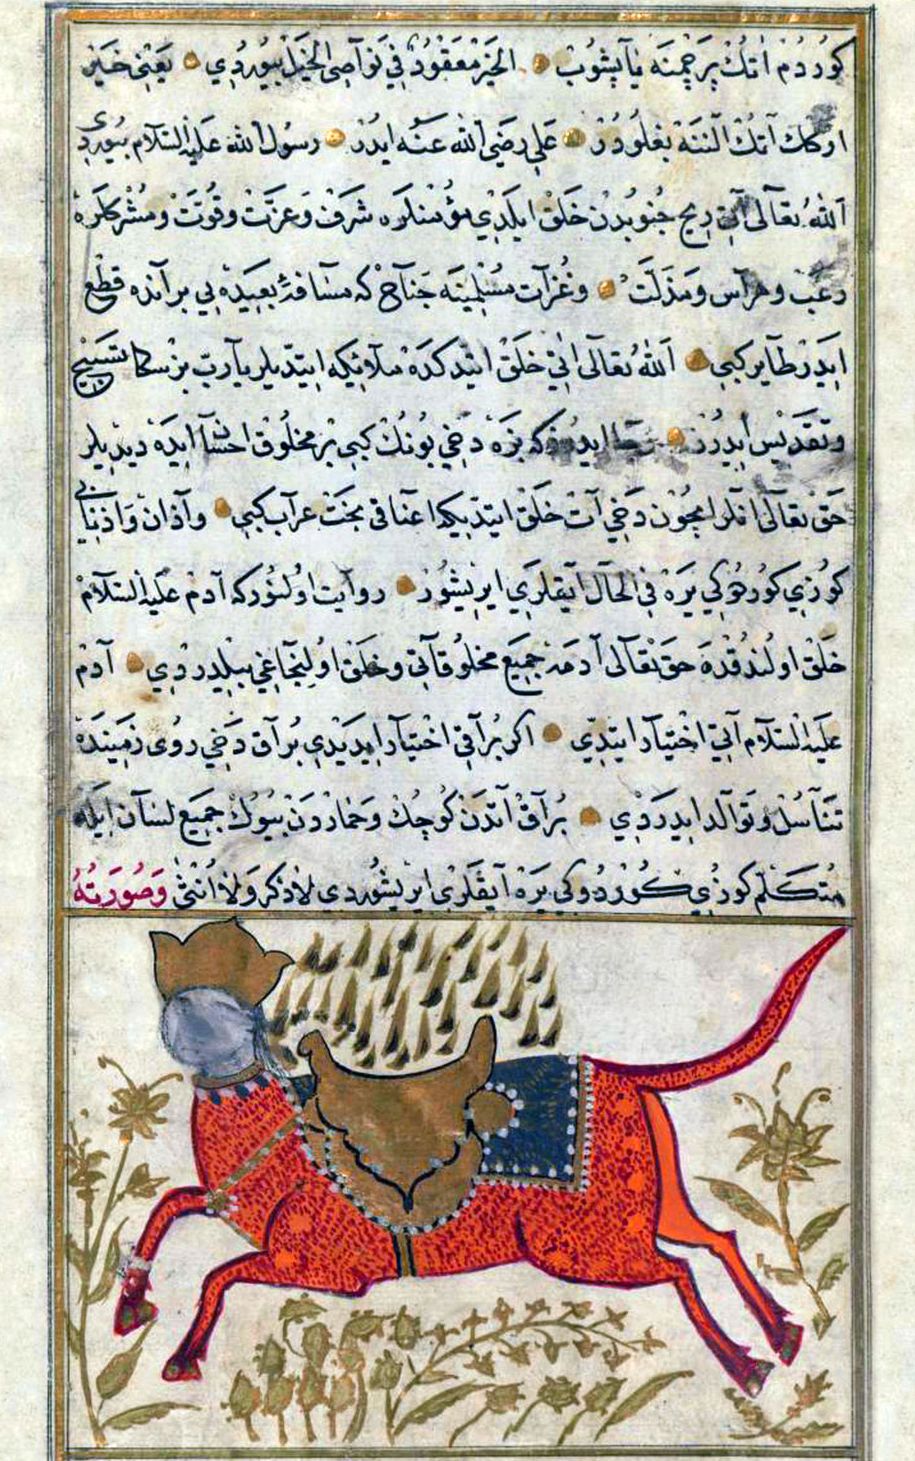 كوردم اتك پرچمنه ياپشوب الخير معقود في نواصي الخيل بيوردي يعني خير
اركك آتك آلننه بغلودر علي رضي الله عنه ايدر رسول الله عليه السلام بيوردي
الله تعالى آتي ريح جنوبدن خلق ايلدي مؤمنلره شرف وعزت وقوت ومشركلره
رعب وهراس ومذلت وغزات مسلمينه جناح كه مسافۀ بعيده يي بر آنده قطع
ايدر طاير كبي الله تعالى اتي خلق ايتدكده ملائكه ايتديلر يارب بز سكا تسبيح
وتقديس ايدرز رجا ايدرز كه بزه دخي بونك كبي بر مخلوق احسان ايده ديديلر
حق تعالى انلر ايچون دخي آت خلق ايتديكه اعناقي بخت عراب كبي وآذان وآذنابي
كوزي كوردوكي يره في الحال آيقلري ايريشور روايت اولنور كه آدم عليه السلام
خلق اولندقده حق تعالى آدمه جميع مخلوقاتي وخلق اولنجاغي بيلدردي آدم
عليه السلام آتي اختيار ايتدي اكر براقي اختيار ايديدي براق دخي روى زمينده
تناسل وتوالد ايدردي براق آتدن كوچك وحماردن بيوك جميع لسان ايله
متكلم كوزي كوردوكي يره آيقلري ايريشوردي لا ذكر ولا أنثى وصورته